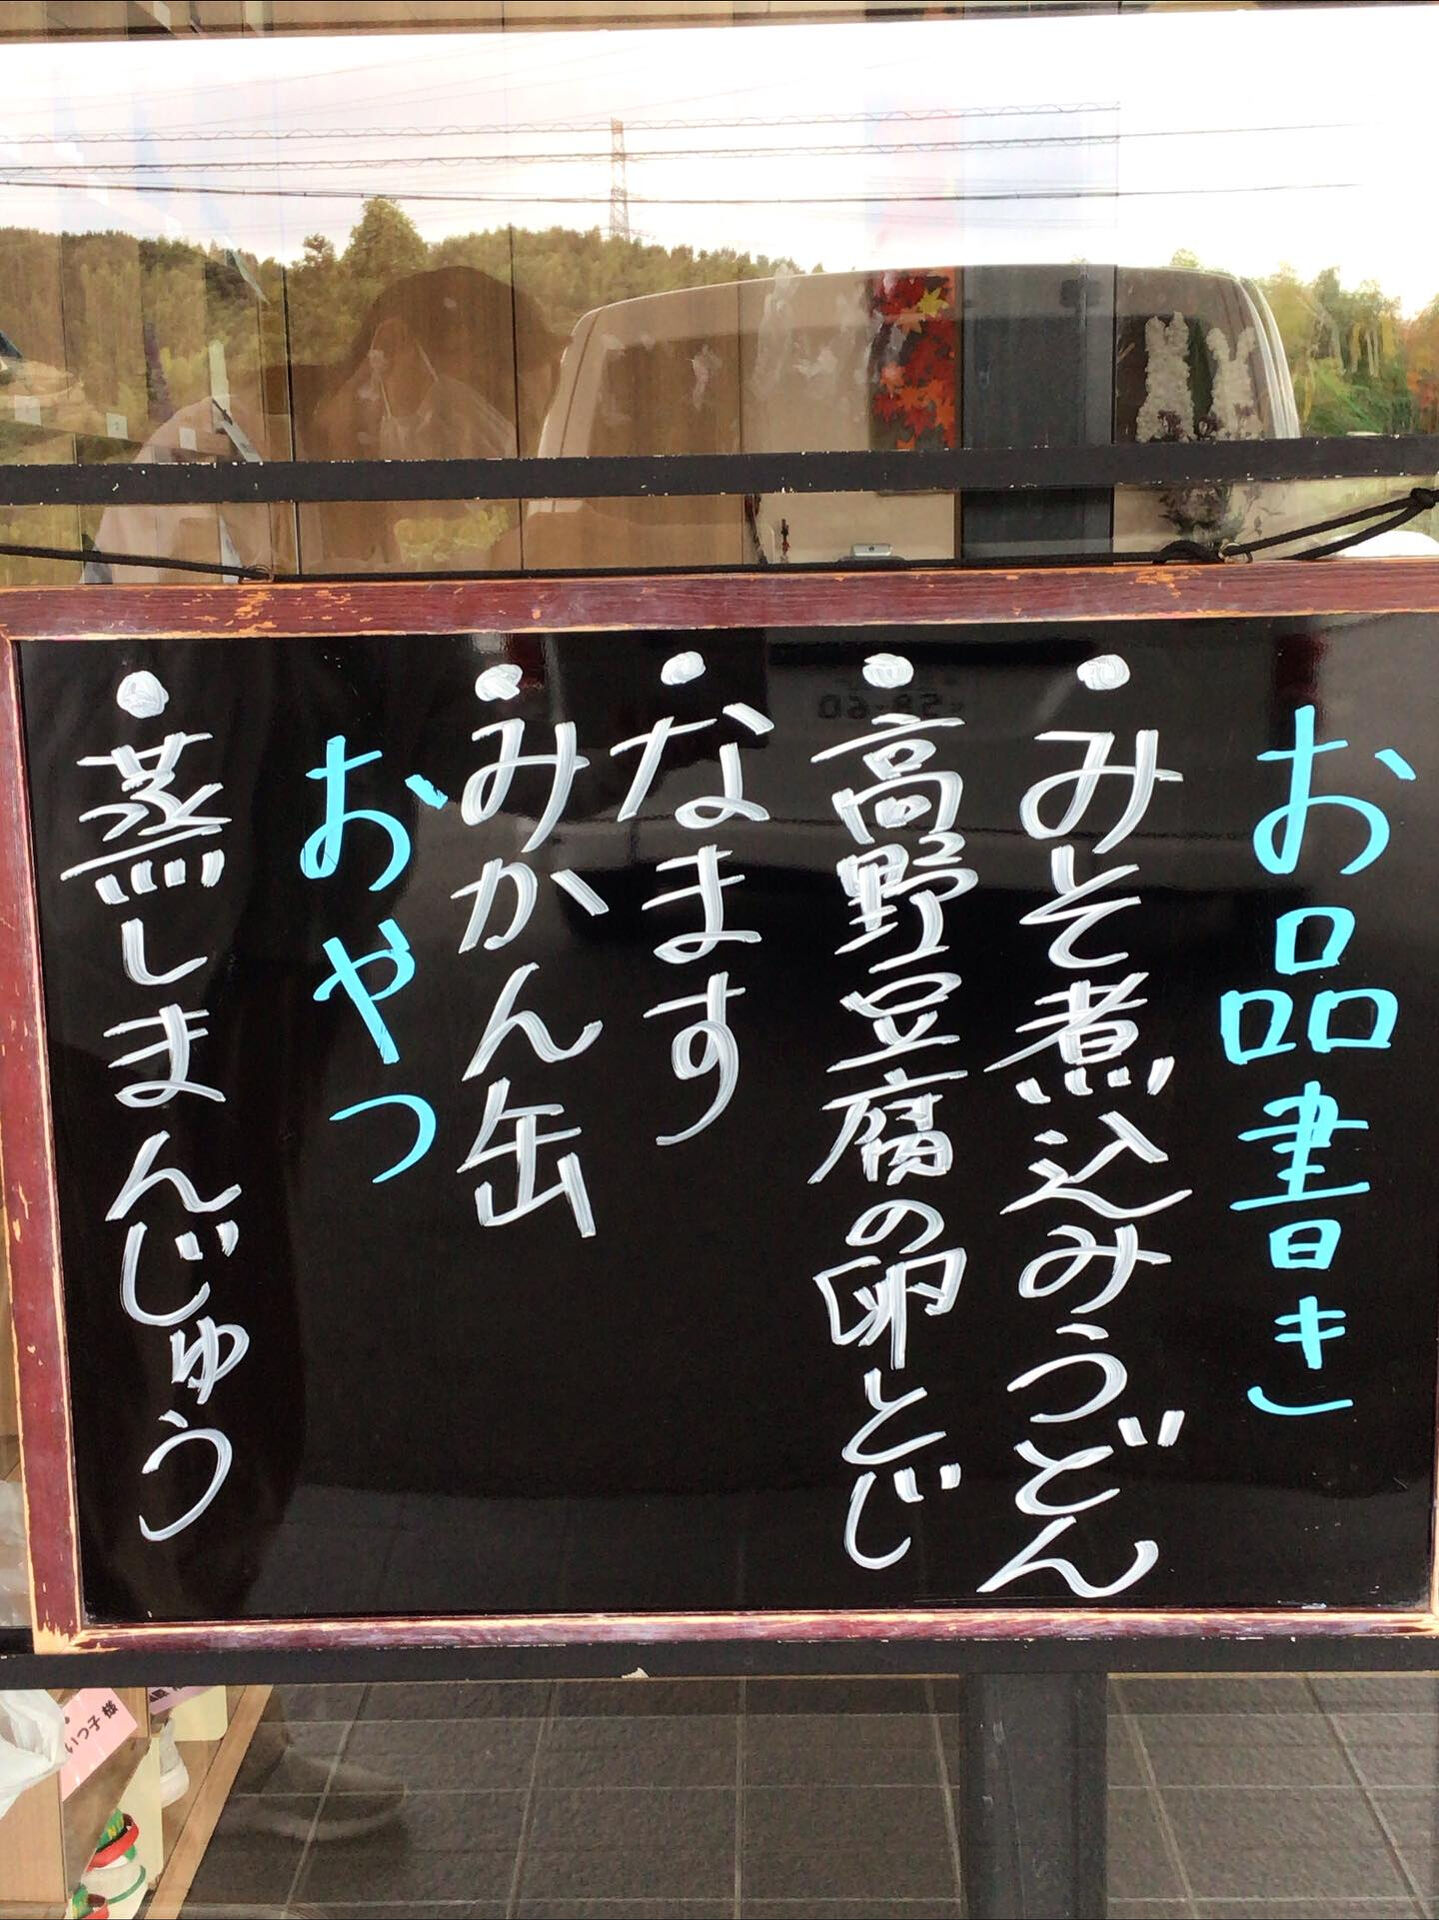 お品書き
・みそ煮込みうどん
・高野豆腐の卵とじ
・なます
・みかん缶
おやつ
・蒸しまんじゅう
いつ子様